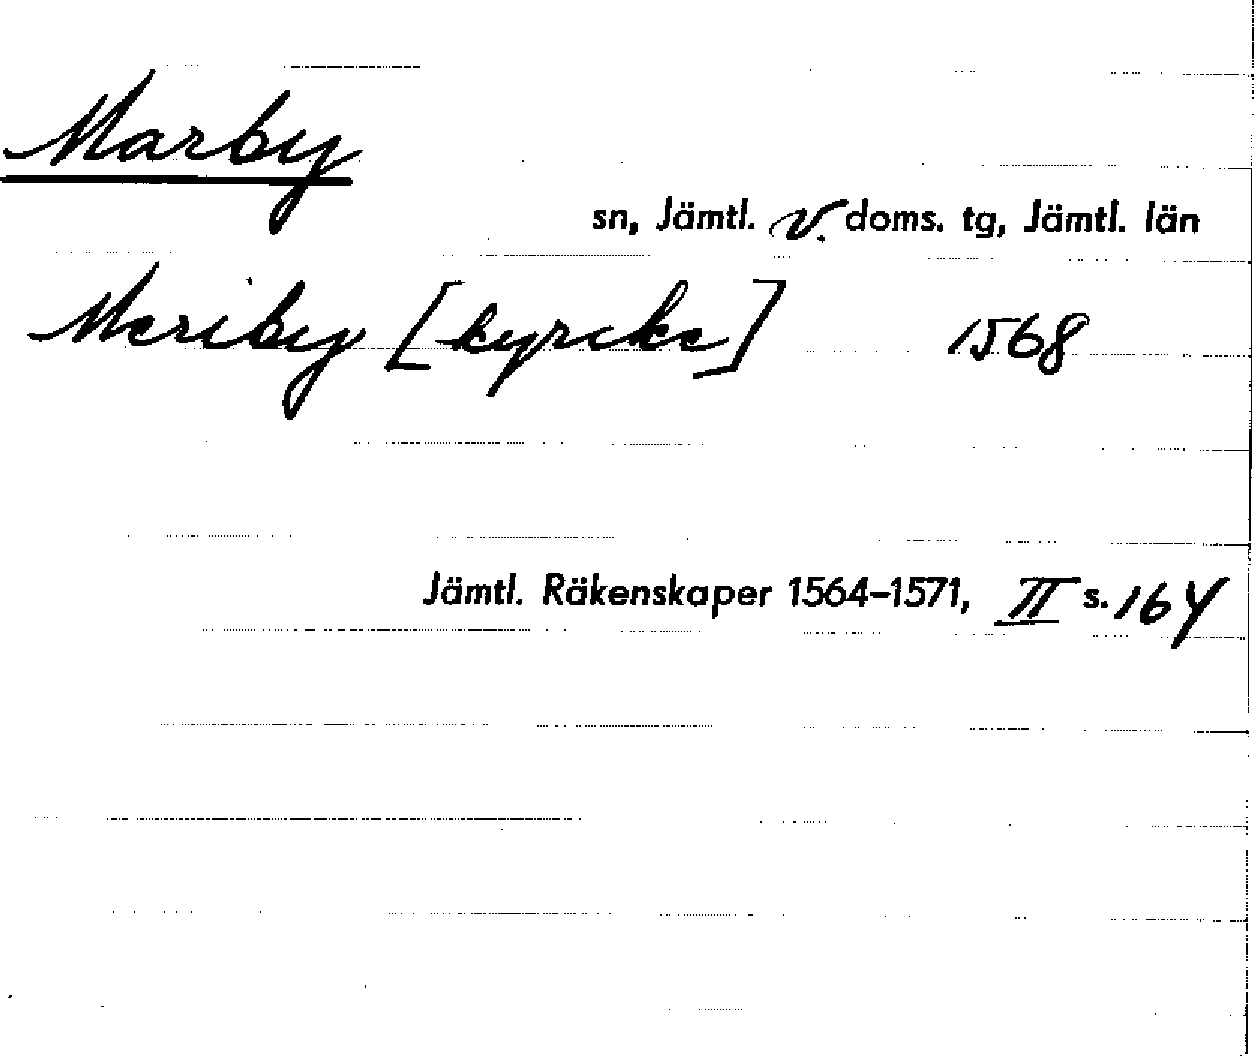 Marby
sn, Jämtl. v. doms. tg, Jämtl. län
Meriby [kyrcke] 1568
Jämtl. Räkenskaper 1564-1571, II s. 164